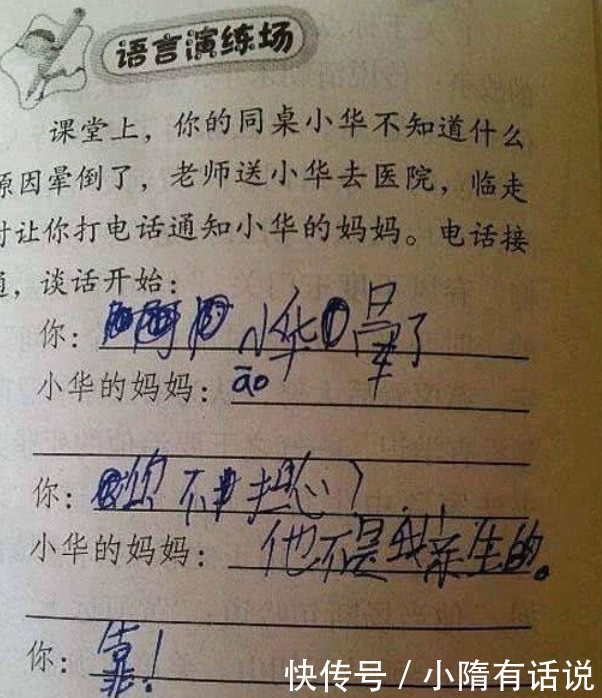 语言演练场
课堂上，你的同桌小华不知道什么
原因晕倒了，老师送小华去医院，临走
时让你打电话通知小华的妈妈。电话接
通，谈话开始：
你：小华晕了
小华的妈妈：āo
你：你不担心？
小华的妈妈：他不是我亲生的。
你：靠！
快传号／小隋有话说